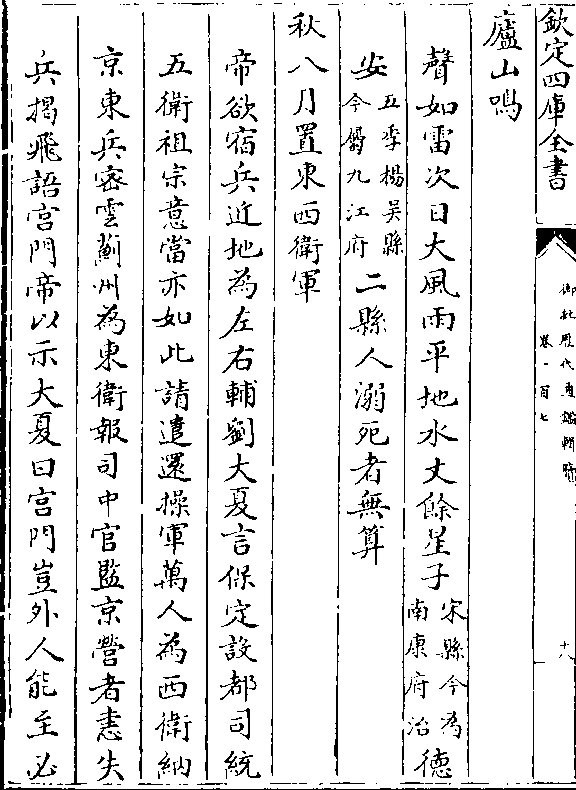 欽定四庫全書
御批歷代通鑑輯覽
卷一百七
十八
廬山鳴
聲如雷次日大風雨平地水丈餘星子宋縣今為南康府治德
安五季楊吳縣今屬九江府二縣人溺死者無算
秋八月置東西衛軍
帝欲宿兵近地為左右輔劉大夏言保定設都司統
五衛祖宗意當亦如此請遣還操軍萬人為西衛納
京東兵密雲薊州為東衛報司中官監京營者恚失
兵揭飛語宮門帝以示大夏曰宮門豈外人能至必